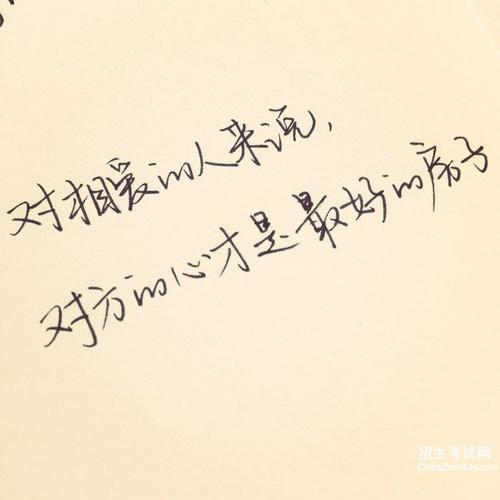 对相爱的人来说，
对方的心才是最好的房子
招生考试网
ChinaZhaoKao.com